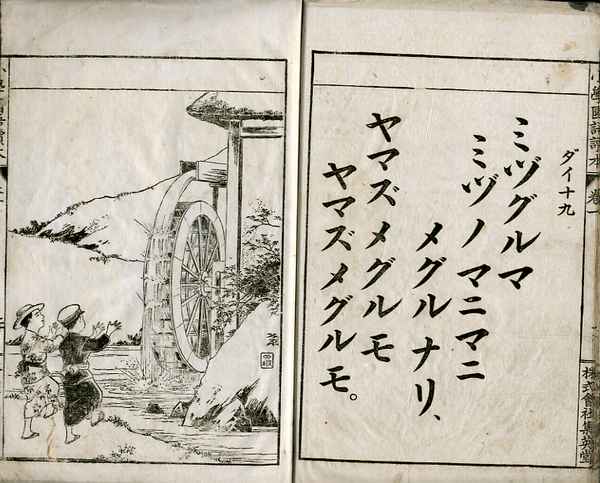 小學國語讀本 卷一
株式會社集英堂
ダイ十九
ミヅグルマ
ミヅノマニマニ
メグルナリ、
ヤマズメグルモ
ヤマズメグルモ。